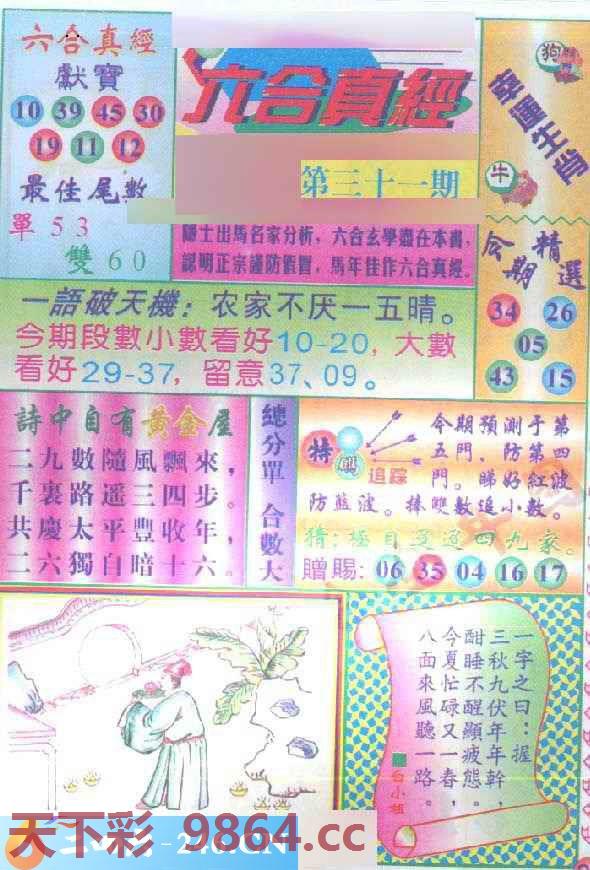 六合真經
獻寶
10 39 45 30
19 11 12
最佳尾數
單 5 3
雙 6 0
六合真經
第三十一期
隱士出馬名家分析，六合玄學盡在本書，
認明正宗謹防假冒，馬年佳作六合真經。
狗
幸運生肖
牛
一語破天機：农家不厌一五晴。
今期段數小數看好10-20，大數
看好29-37，留意37、09。
今期精選
34 26
05
43 15
詩中自有黃金屋
二九數隨風飄來，
千裏路遥三四步。
共慶太平豐收年，
二六獨自暗十六。
總分單 合數大
特
追踪
今期預測于第
五門、防第四
門。睇好紅波
防藍波。捧雙數追小數。
猜：極目遥遥四九家。
贈賜：06 35 04 16 17
一字之曰：握
三秋九伏年年幹，
酣睡不醒顯疲態。
今夏忙碌又一春，
八面來風聽一路。
天下彩 9864.cc